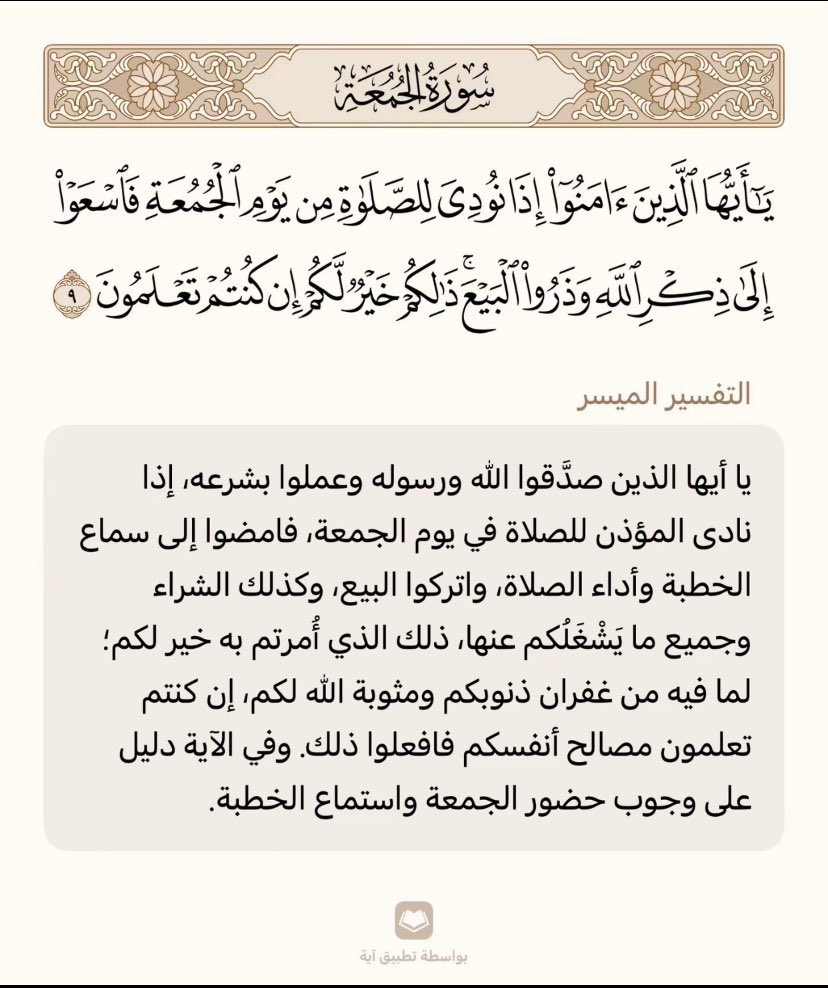 سُورَةُ الجُمُعَةِ
يَـٰٓأَيُّهَا ٱلَّذِينَ ءَامَنُوٓا۟ إِذَا نُودِىَ لِلصَّلَوٰةِ مِن يَوْمِ ٱلْجُمُعَةِ فَٱسْعَوْا۟
إِلَىٰ ذِكْرِ ٱللَّهِ وَذَرُوا۟ ٱلْبَيْعَ ۚ ذَٰلِكُمْ خَيْرٌ لَّكُمْ إِن كُنتُمْ تَعْلَمُونَ ٩
التفسير الميسر
يا أيها الذين صدَّقوا الله ورسوله وعملوا بشرعه، إذا
نادى المؤذن للصلاة في يوم الجمعة، فامضوا إلى سماع
الخطبة وأداء الصلاة، واتركوا البيع، وكذلك الشراء
وجميع ما يَشْغَلُكم عنها، ذلك الذي أُمرتم به خير لكم؛
لما فيه من غفران ذنوبكم ومثوبة الله لكم، إن كنتم
تعلمون مصالح أنفسكم فافعلوا ذلك. وفي الآية دليل
على وجوب حضور الجمعة واستماع الخطبة.
بواسطة تطبيق آية